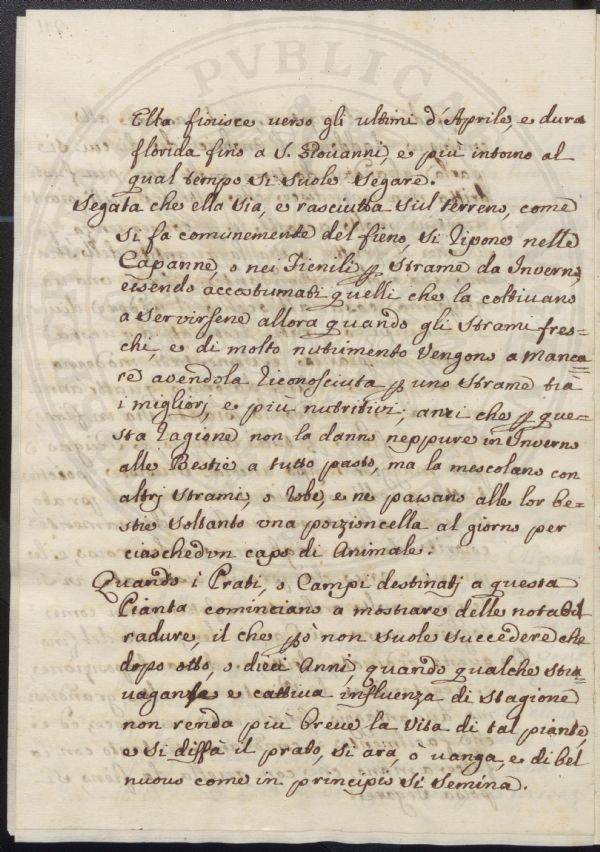 PVBLICA
Ella fiorisce verso gli ultimi d'Aprile, e dura
florida fino a S. Giovanni, e più intorno al
qual tempo si suole segare.
Segata che ella sia, e rasciutta sul terreno, come
si fà comunemente del fieno, si ripone nelle
Capanne, o nei Fienili p strame da Inverno,
essendo accostumati quelli che la coltivano
a servirsene allora quando gli strami fres=
chi, e di molto nutrimento vengono a manca=
re avendola riconosciuta p uno strame trà
i migliorj, e più nutritivi; anzi che p que=
sta ragione non la danno neppure in Inverno
alle Bestie a tutto pasto, ma la mescolano con
altrj strami, o robe, e ne passano alle lor be=
stie soltanto una porzioncella al giorno per
ciaschedun capo di Animale.
Quando i Prati, o Campi destinatj a questa
Pianta cominciano a mostrare delle notabil
radure, il che pò non suole succedere che
dopo otto, o dieci Anni, quando qualche stra=
vagante e cattiva influenza di stagione
non renda più breve la vita di tal piante,
e si disfà il prato, si ara, o vanga, e di bel
nuovo come in principio si semina.